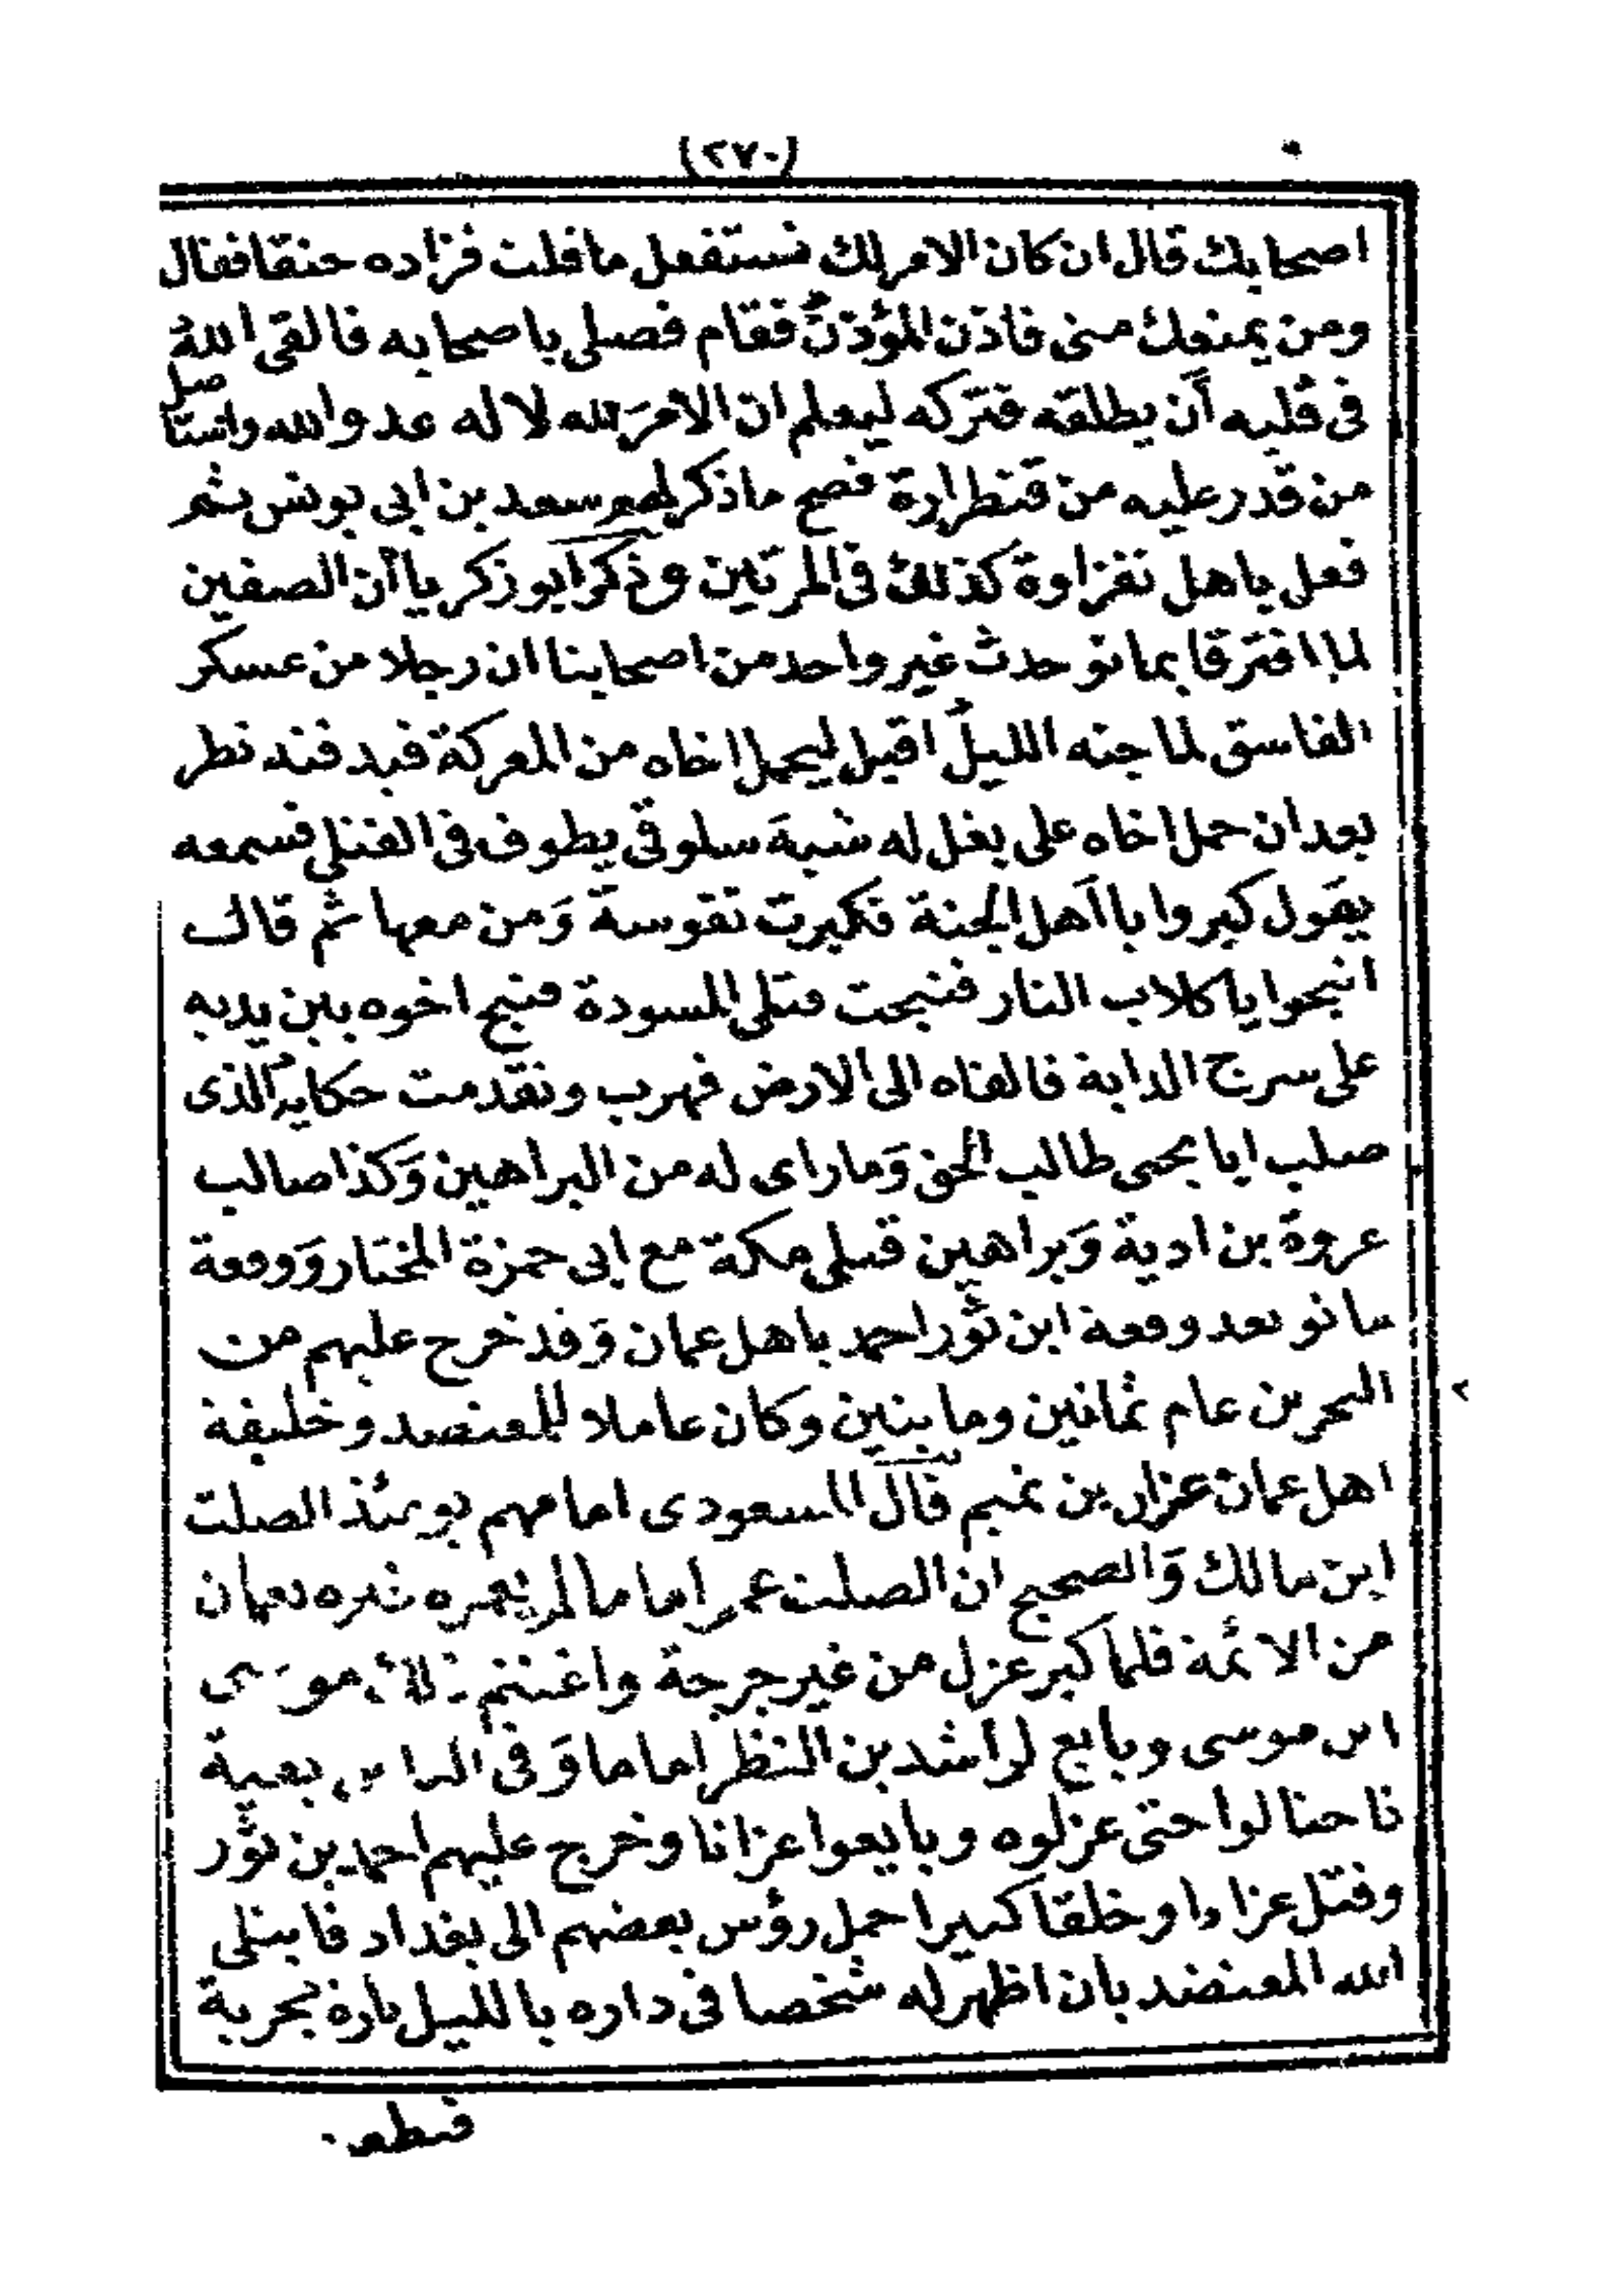 (٢٧٠)
اصحابك قال ان كان الامر لك نستفعل ما قلت فزاده حنقا فقال
ومن يمنعك منى فاذن المؤذن فقام فصلى باصحابه فالقى الله
فى قلبه أن يطلقه فتركه ليعلم ان الامرَ لله لا له عدو الله واستاصل
من قدر عليه من قنطرارة فصح ما ذكر لهم سعد بن ابى يونس ثم
فعل باهل نفزاوة كذلك فى المرتين وذكر ابو زكريا أن الصفين
لما افترقا بمانو حدث غير واحد من اصحابنا ان رجلا من عسكر
الفاسق لما جنه الليلُ اقبل ليحمل اخاه من المعركة فبد فند نظر
بعد ان حمل اخاه على بغل له شبهَ سلوقى يطوف فى القتلى فسمعه
يقَول كبروا يا اَهل الجنة فكبرت نفوسة وَمن معها ثم قال
انبحوا يا كلاب النار فنبحت قتلى المسودة فنبح اخوه بين يديه
على سرج الدابة فالقاه الى الارض فهرب وتقدمت حكاية الذى
صلب ابا يحيى طالب الحق وَما راى له من البراهين وَكذا صالب
عروة بن ادية وَبراهين قتلى مكة مع ابى حمزة المختار وَوقعة
مانو بعد وقعة ابن ثور احمد باهل عمان وَقد خرج عليهم من
البحرين عام ثمانين وماينين وكان عاملا للمعتضد وخليفة
اهل عمان عزان بن تميم قال المسعودى امامهم يومئذ الصلت
ابن مالك وَالصحيح ان الصلت عمر اماما ما لم يعمره غيره بعمان
من الائمة فلما كبر عزل من غير جرحة واغتنم ذلك موسى
ابن موسى وبايع لراشد بن النظر اماما وَفى الناس بقية
فاحتالوا حتى عزلوه وبايعوا عزانا وخرج عليهم احمد بن ثور
وقتل عزانا وخلقا كبيرا حمل رؤس بعضهم الى بغداد فابتلى
الله المعتضد بان اظهر له شخصا فى داره بالليل تارة بحربة